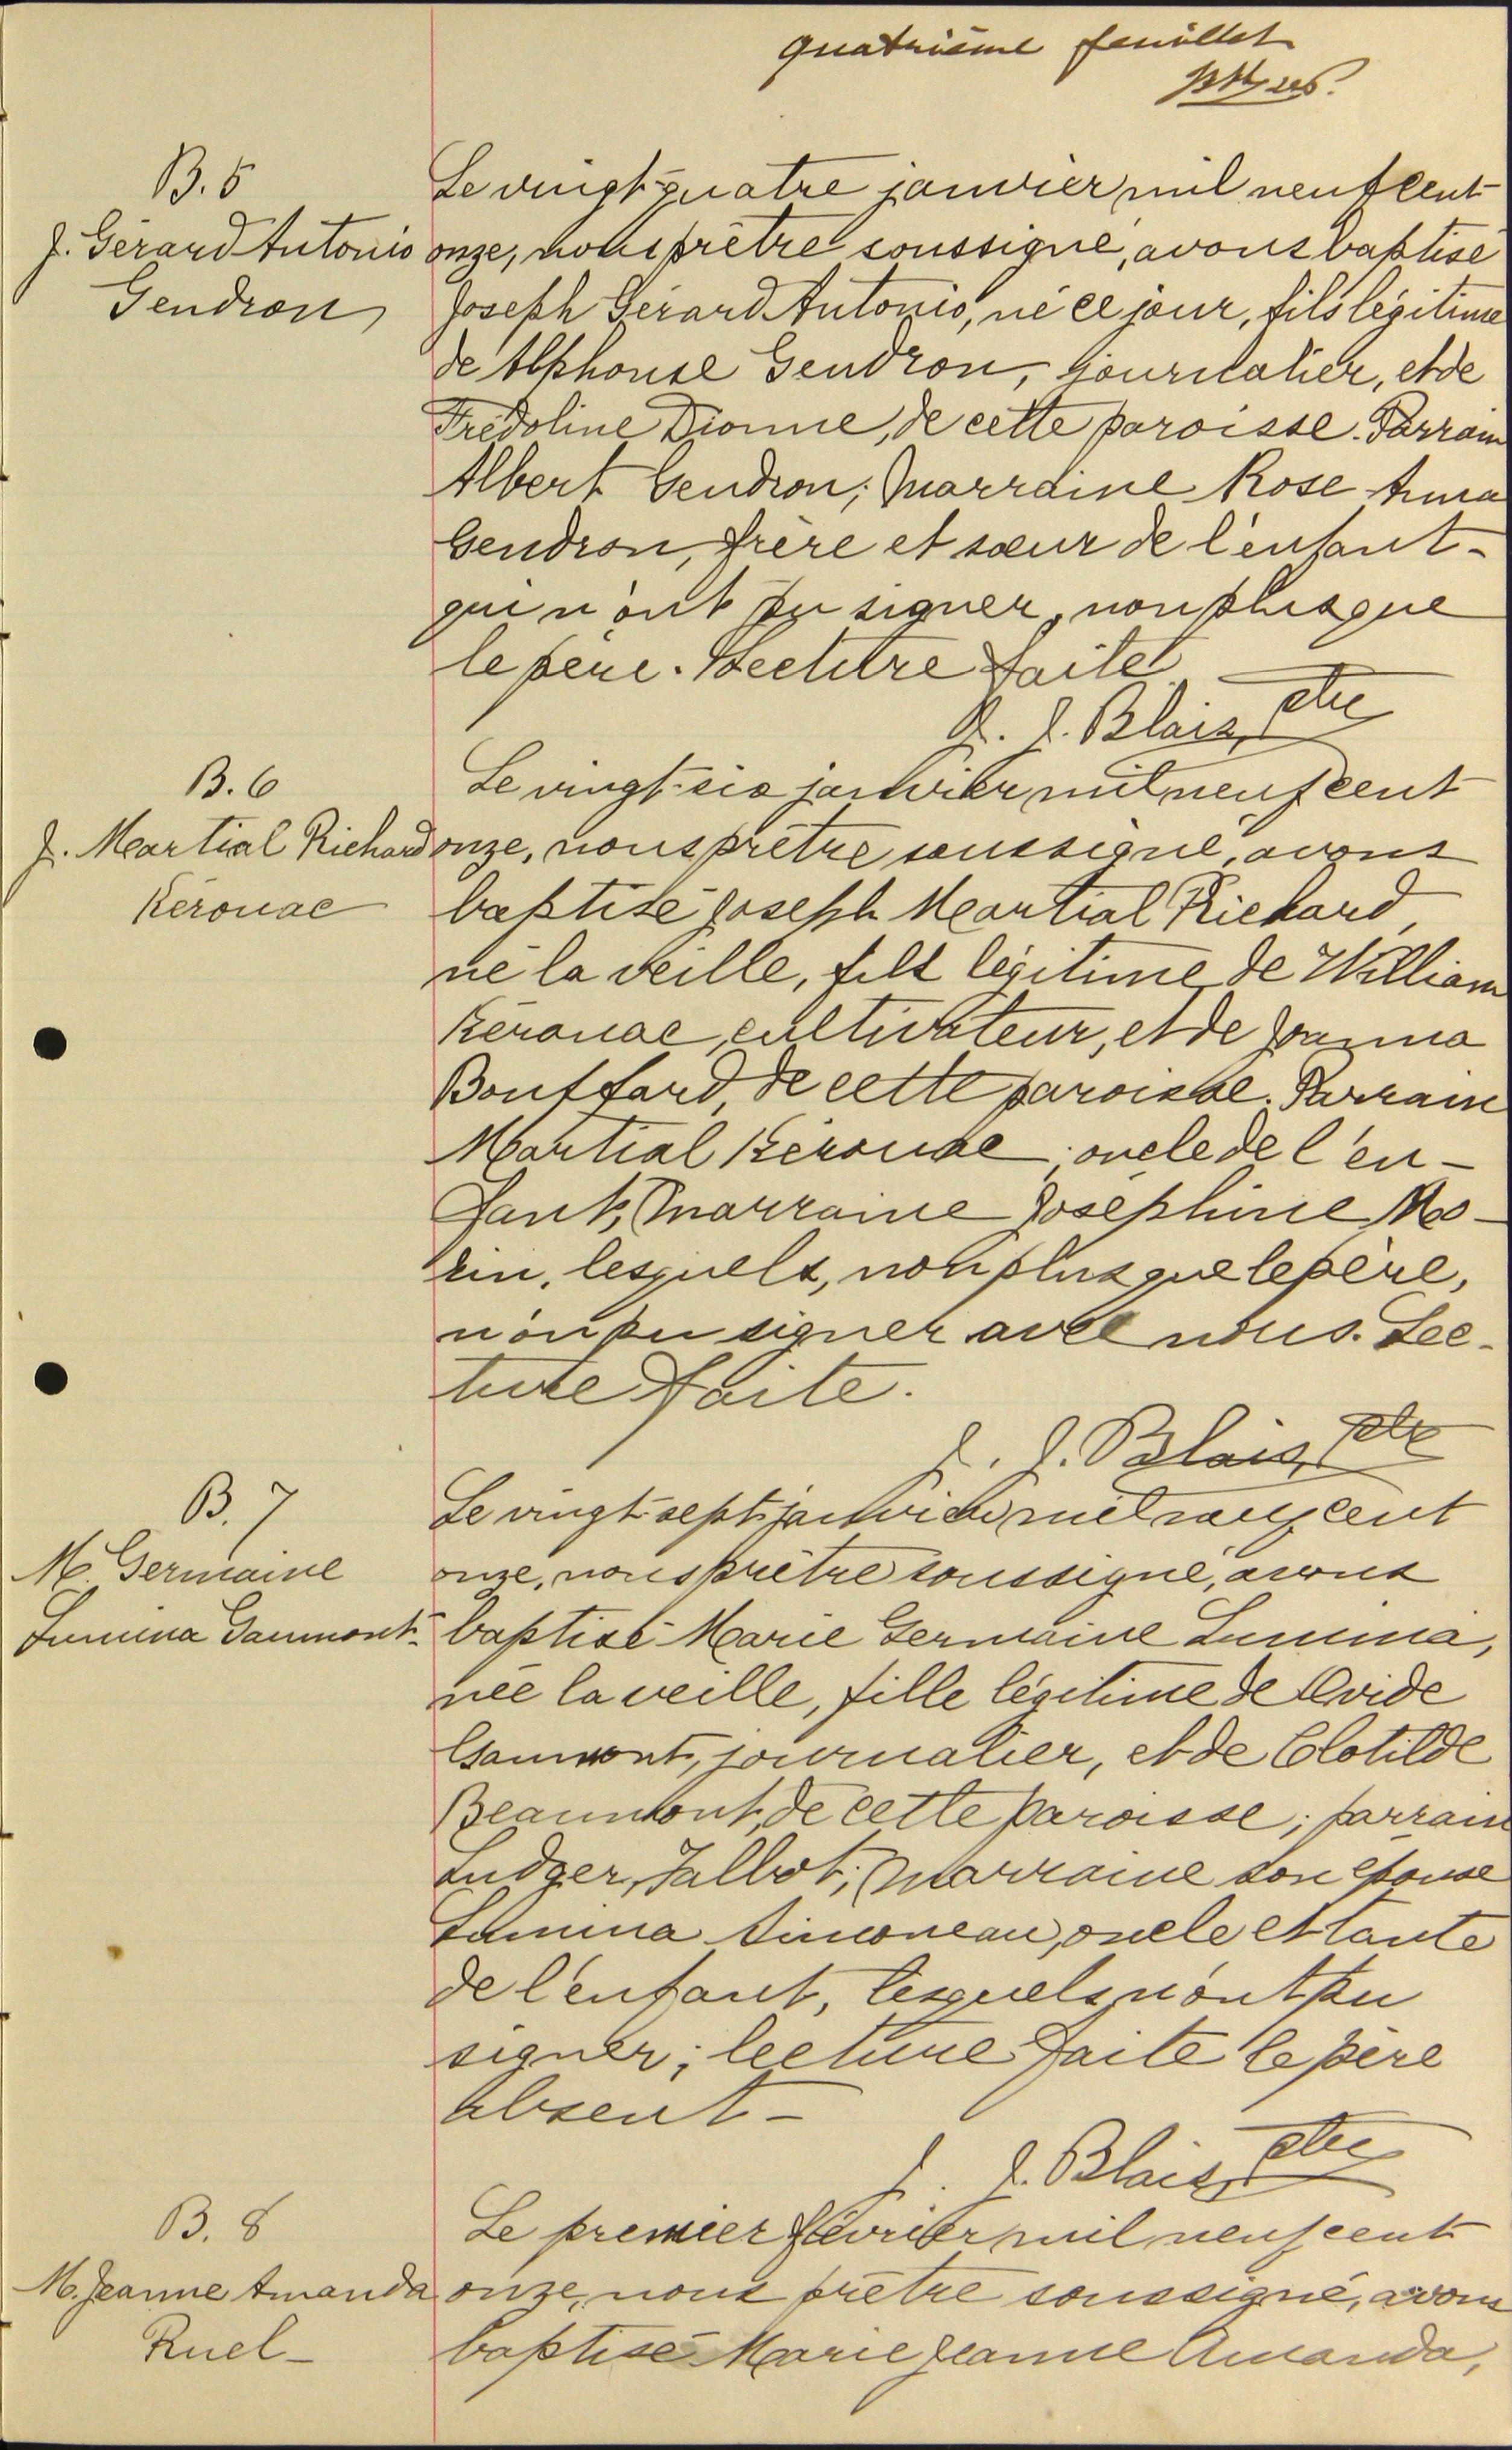 quatrième feuillet
B. 5
J. Gérard Antonio
Gendron
Le vingt-quatre janvier mil neuf cent
onze, nous prêtre soussigné, avons baptisé
Joseph Gérard Antonio, né ce jour, fils légitime
de Alphonse Gendron, journalier, et de
Fredoline Dionne, de cette paroisse. Parrain
Albert Gendron; Marraine Rose Anna
Gendron, frère et sœur de l'enfant-
qui n'ont pu signer, non plus que
le père. Lecture faite
J. Blais, ptre
B. 6
J. Martial Richard
Kérouac
Le vingt-six janvier mil neuf cent
onze, nous prêtre soussigné, avons
baptisé Joseph Martial Richard,
né la veille, fils légitime de William
Kérouac, cultivateur, et de Joanna
Bouffard, de cette paroisse. Parrain
Martial Kérouac, oncle de l'en-
fant, Marraine Joséphine Mo-
rin, lesquels, non plus que le père,
n'on pu signer avec nous. Lec-
ture faite.
J. J. Blais, ptre
B. 7
M. Germaine
Lumina Gaumont-
Le vingt-sept janvier mil neuf cent
onze, nous prêtre soussigné, avons
baptisé Marie Germaine Lumina,
née la veille, fille légitime de Ovide
Gaumont, journalier, et de Clotilde
Beaumont, de cette paroisse; parrain
Ludger Talbot; Marraine son épouse
Lumina Simoneau, oncle et tante
de l'enfant, lesquels n'ont pu
signer; lecture faite le père
absent-
J. J. Blais, ptre
B. 8
M. Jeanne Amanda
Ruel-
Le premier février mil neuf cent
onze, nous prêtre soussigné, avons
baptisé Marie Jeanne Amanda,